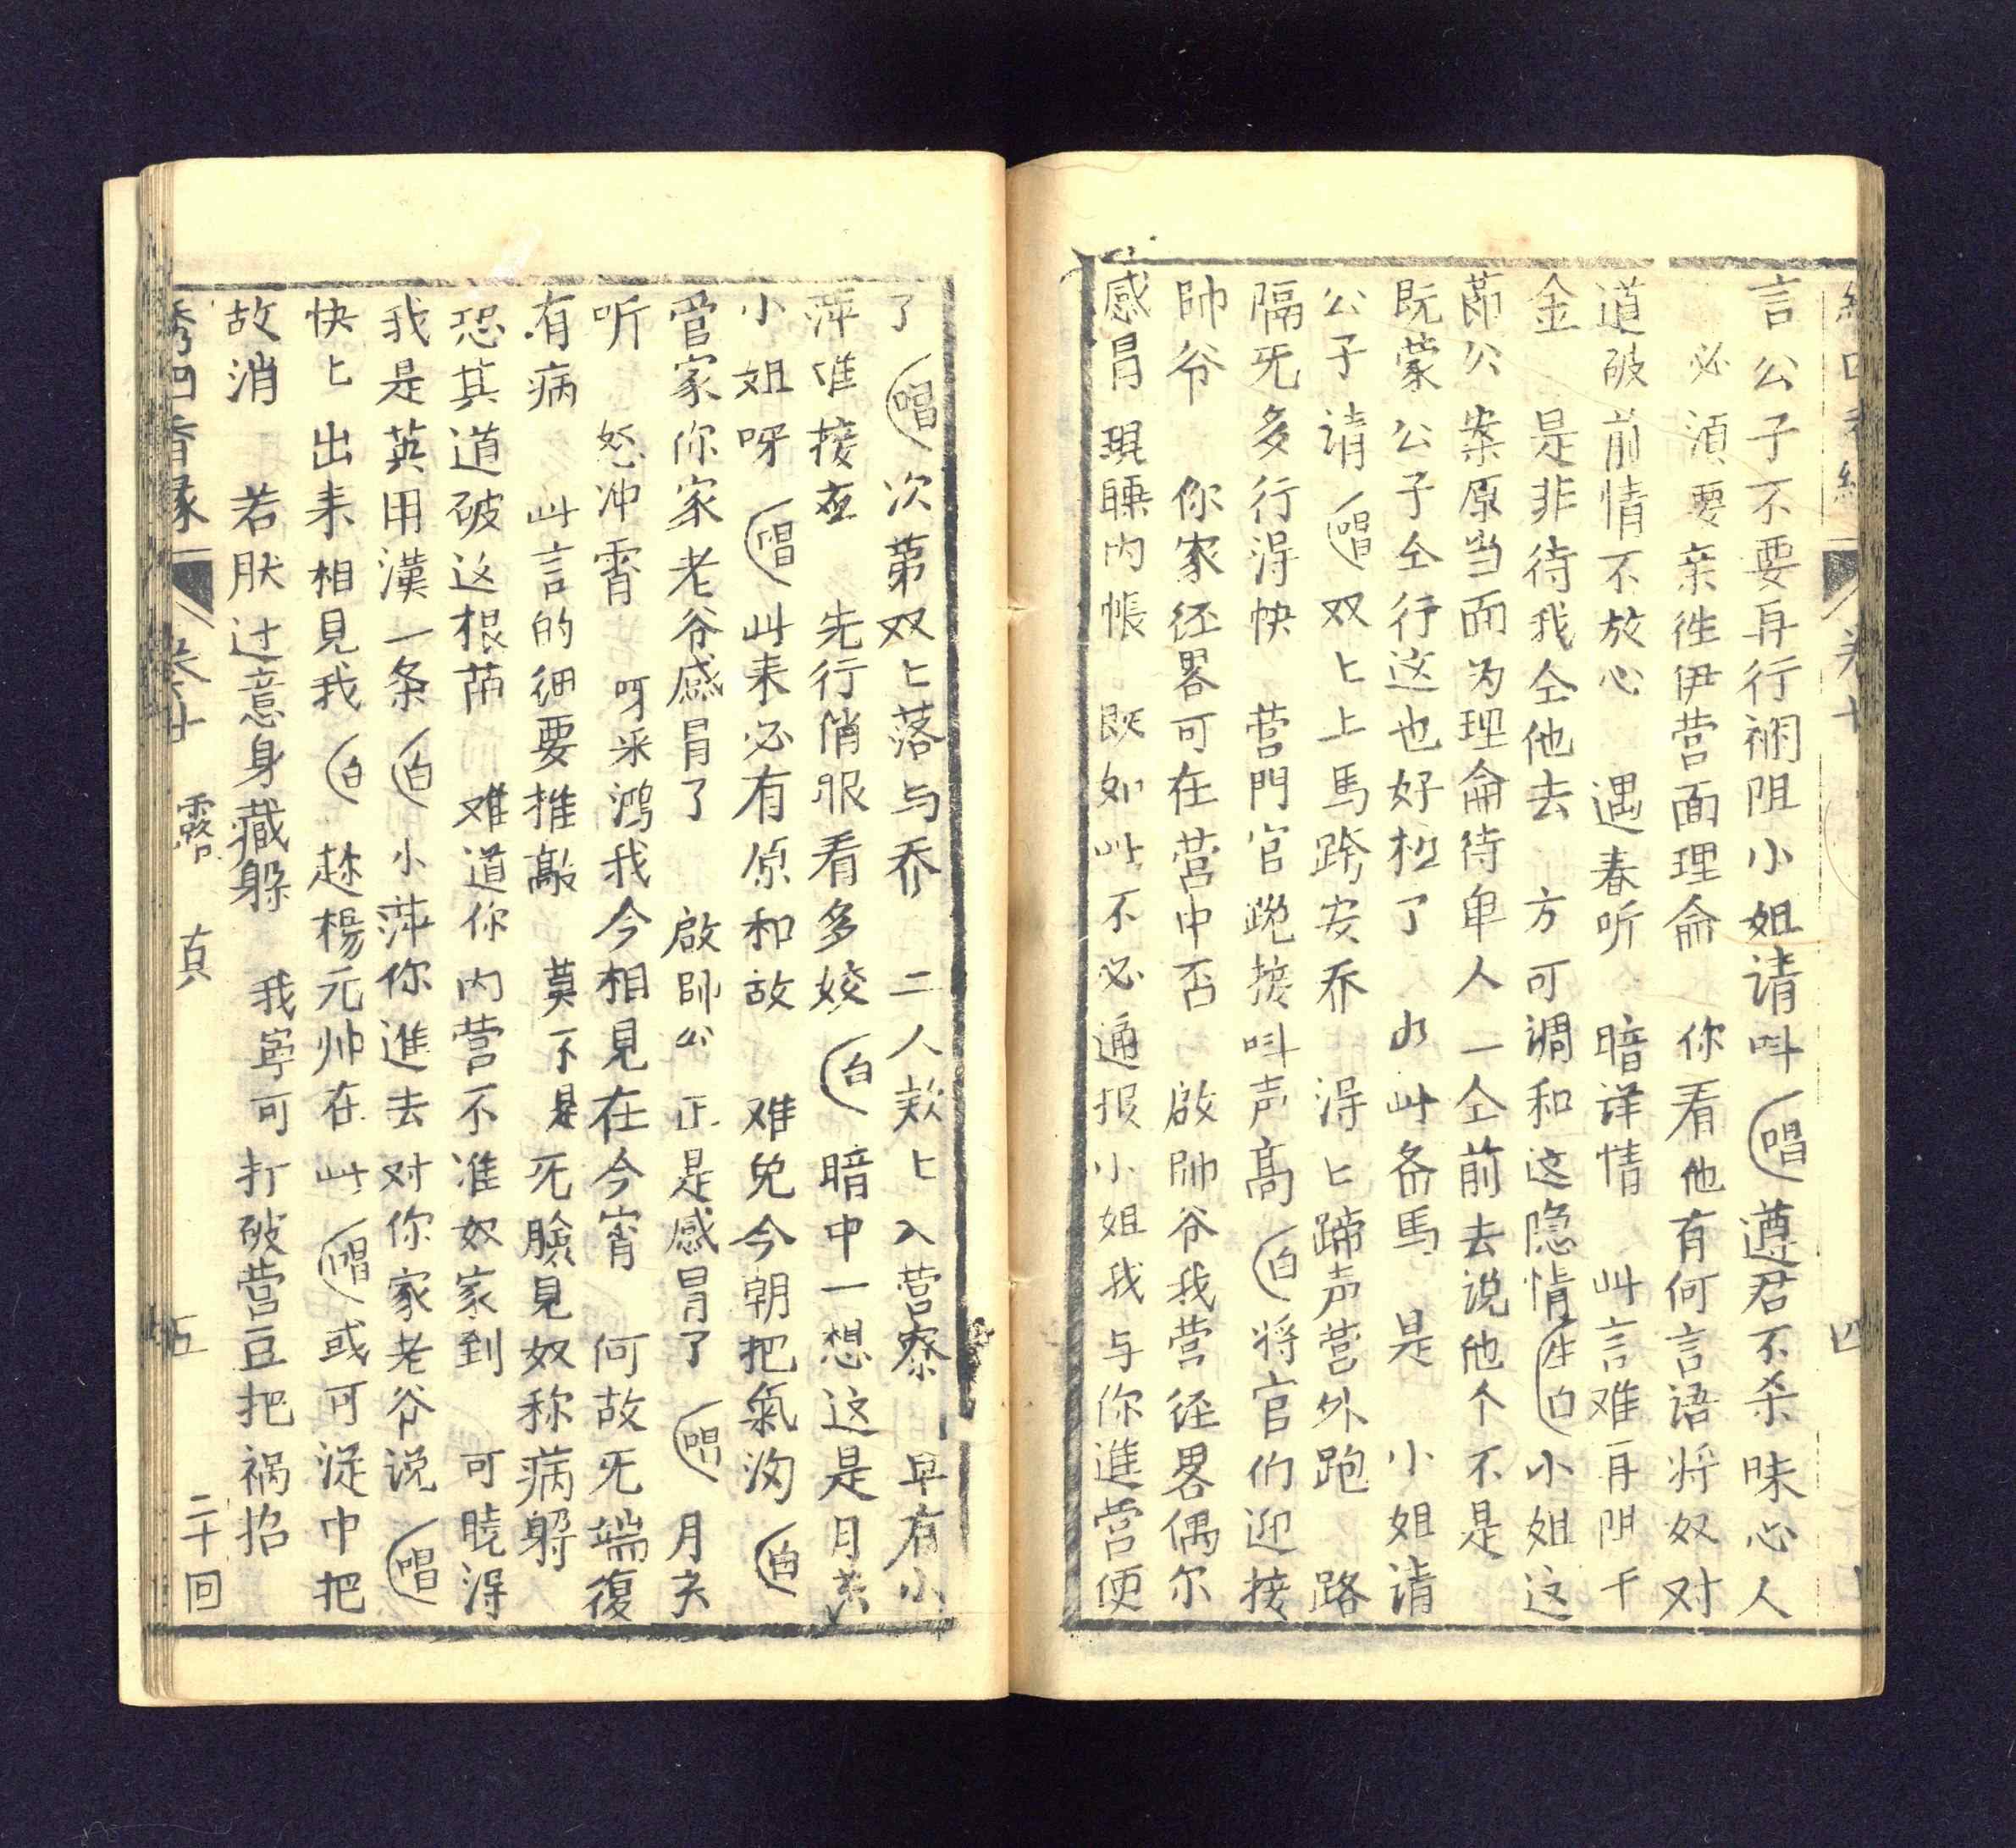 言公子不要再行禂阻小姐请呌唱遵君不杀昧心人
必湏要亲徃伊营面理侖 你看他有何言语将奴对
道破前情不放心 遇春听 暗详情 此言难再阻千
金 是非待我仝他去 方可调和这隐情生白小姐这
莭公案原当面为理侖待单人一仝前去说他个不是
既蒙公子仝行这也好极了 如此备馬 是 小姐请
公子请唱双〻上馬跨安乔 淂〻蹄声营外跑 路
隔旡多行淂快 营門官跪接呌声高白将官们迎接
帥爷 你家径畧可在营中否 啟帥爷我营径畧偶尔
感冒現睡内帳 既如此不必通报小姐我与你進营便
了唱次苐双〻落与乔 二人欵〻入营寮 早有小
萍准接在 先行俏眼看多姣白暗中一想这是月英
小姐呀唱此来必有原和故 难免今朝把氣淘白
管家你家老爷感冒了 啟帥公正是感冒了唱月英
听 怒冲霄 呀采鸿我今相見在今宵 何故旡端復
有病 此言的细要推敲 莫不是旡臉見奴称病躲
恐其道破这根苗 难道你内营不准奴家到 可曉淂
我是英用漢一条白小萍你進去对你家老爷说唱
快〻出来相見我白趂楊元帅在此唱或可淀中把
故消 若肰过意身藏躲 我寧可打破营豆把祸招
綉四香緣 卷廿 露真 五 二十回